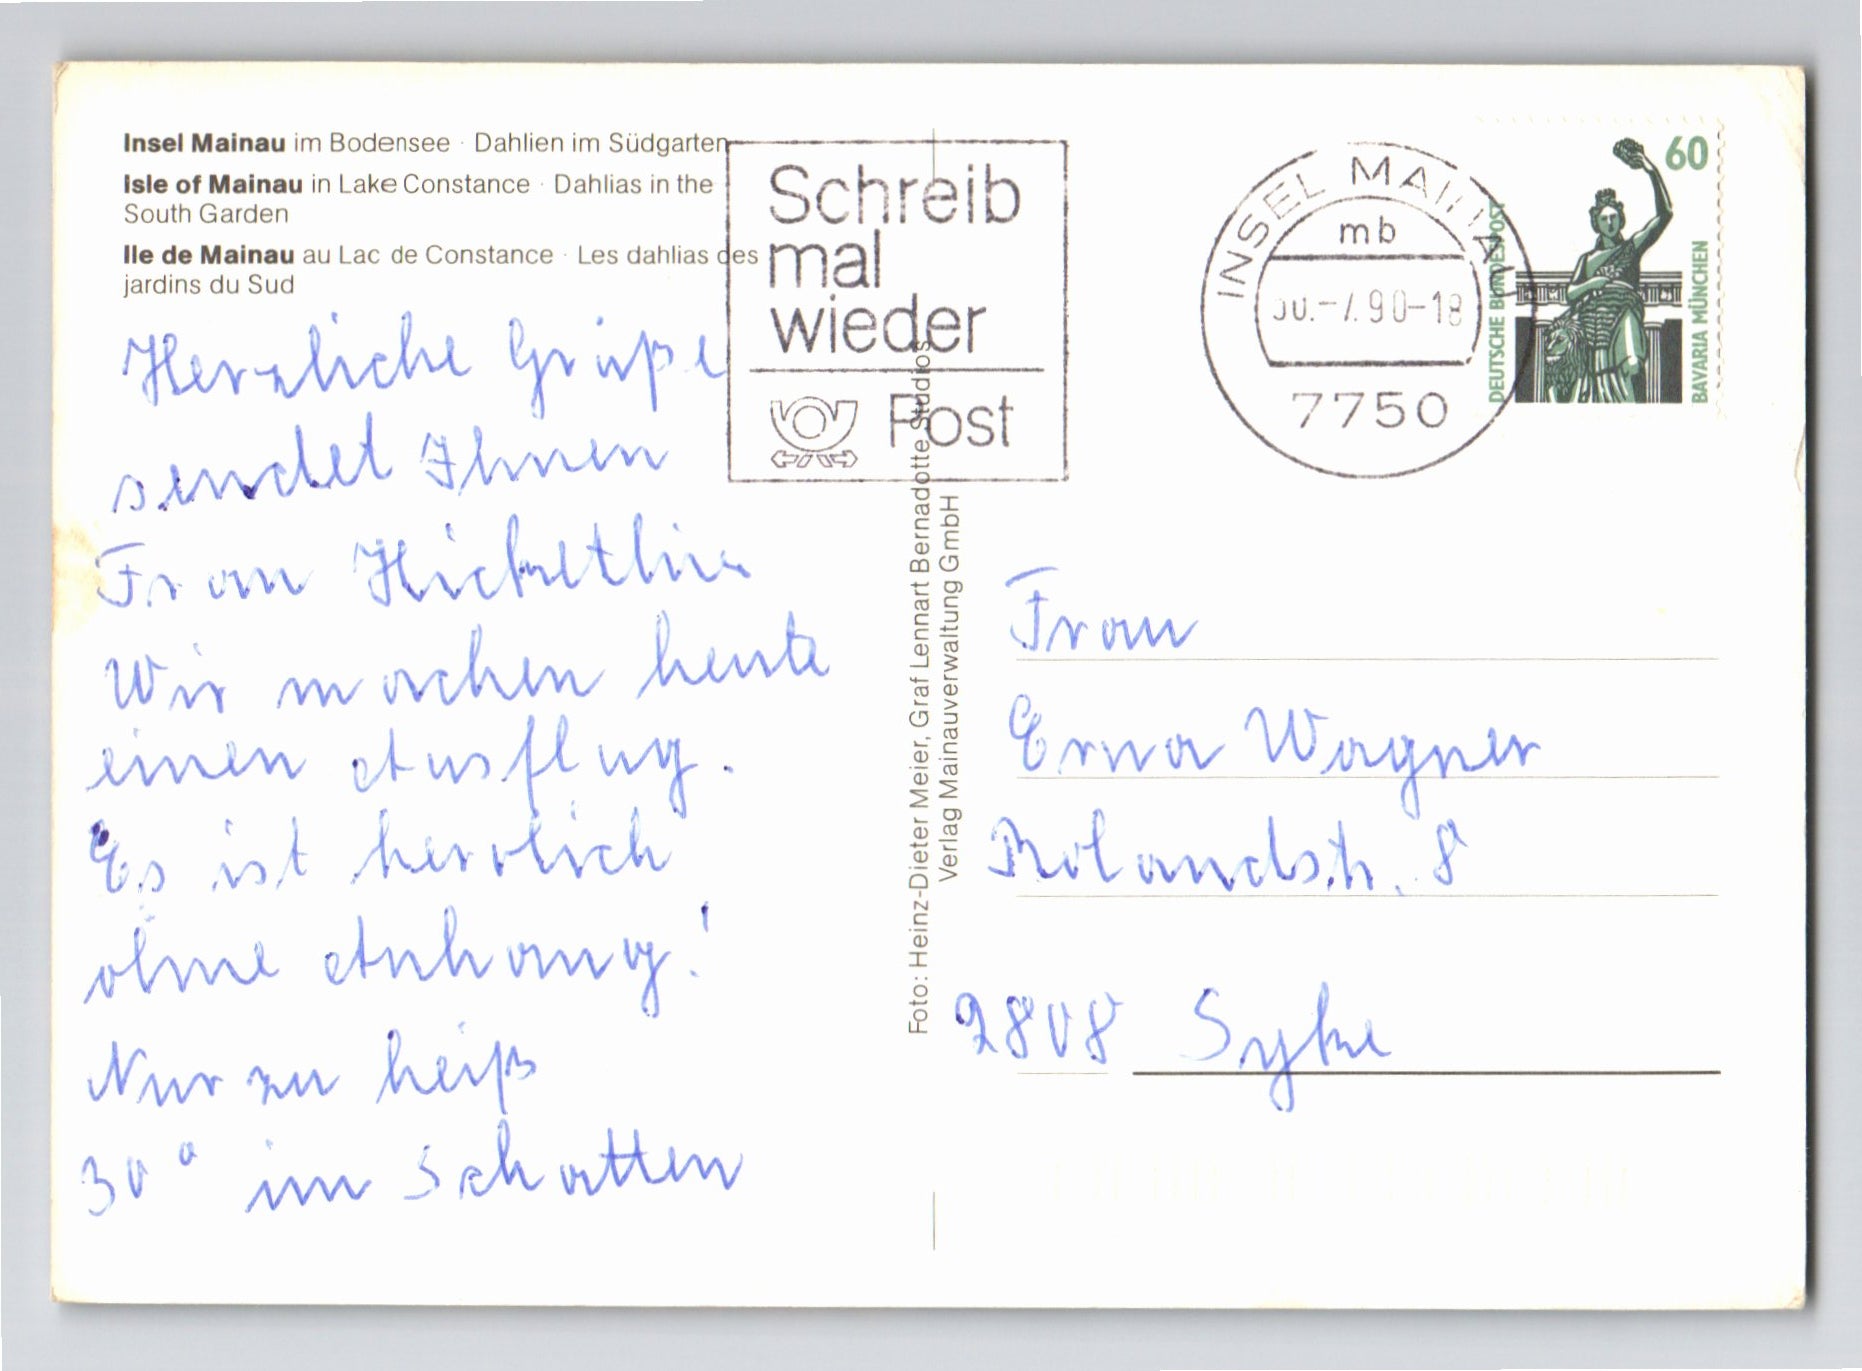 Insel Mainau im Bodensee · Dahlien im Südgarten
Isle of Mainau in Lake Constance · Dahlias in the
South Garden
Ile de Mainau au Lac de Constance · Les dahlias des
jardins du Sud
Herzliche Grüße
sendet Ihnen
Frau
Wir machen heute
einen Ausflug.
Es ist herrlich
ohne Anhang!
Nur zu heiß
30° im Schatten
Schreib
mal
wieder
Post
INSEL MAINAU
mb
30.-7.90-18
7750
60
DEUTSCHE BUNDESPOST
BAVARIA MÜNCHEN
Foto: Heinz-Dieter Meier, Graf Lennart Bernadotte Studios
Verlag Mainauverwaltung GmbH
Frau
Erna Wagner
Rolandstr. 8
2808 Syke